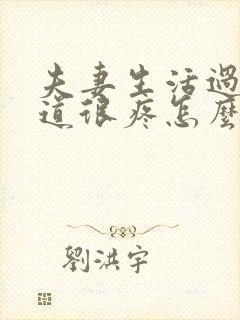 夫妻生活過
道很疼怎麼
劉洪宇